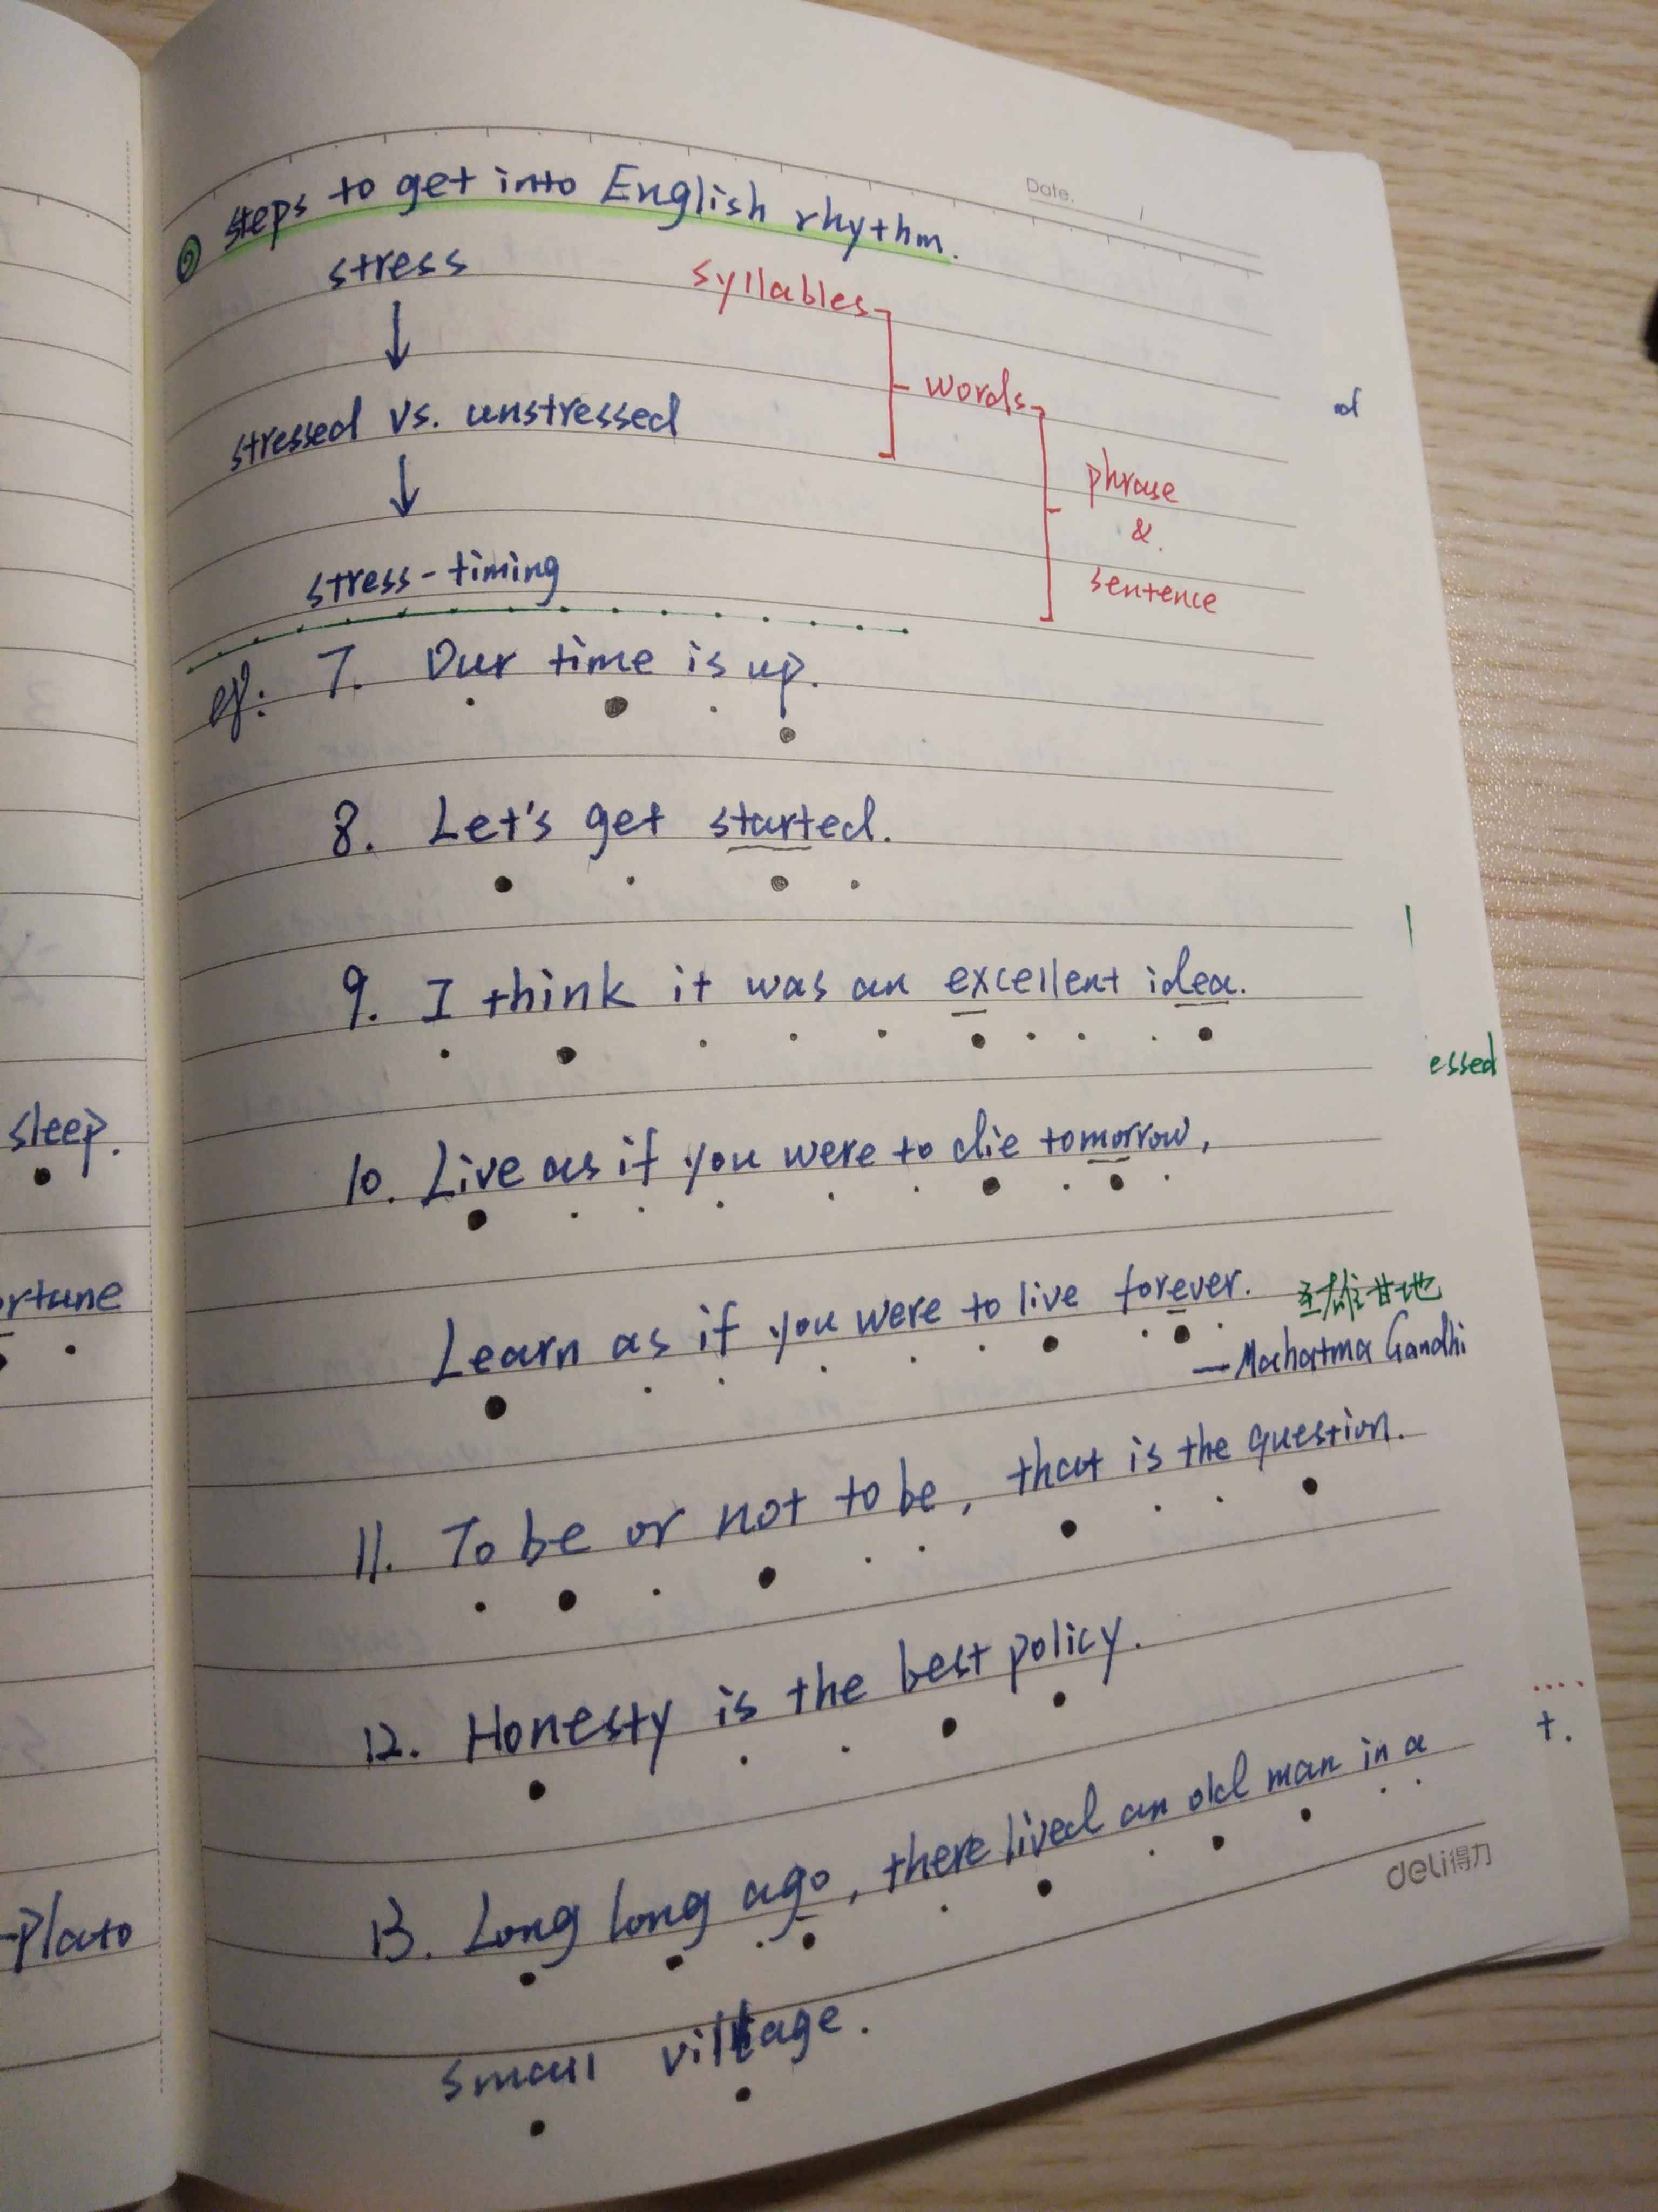 Date.
② steps to get into English rhythm.
stress
syllables
words
stressed vs. unstressed
phrase
&
sentence
stress-timing
eg: 7. Our time is up.
8. Let's get started.
9. I think it was an excellent idea.
essed
sleep.
10. Live as if you were to die tomorrow,
rtune
Learn as if you were to live forever.
圣雄甘地
— Mahatma Gandhi
11. To be or not to be, that is the question.
12. Honesty is the best policy.
t.
13. Long long ago, there lived an old man in a
deli得力
-Plato
small village.